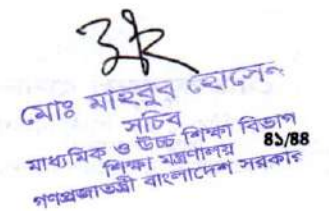 মোঃ মাহবুব হোসেন
সচিব
মাধ্যমিক ও উচ্চ শিক্ষা বিভাগ
শিক্ষা মন্ত্রণালয়
৪১/৪৪
গণপ্রজাতন্ত্রী বাংলাদেশ সরকার